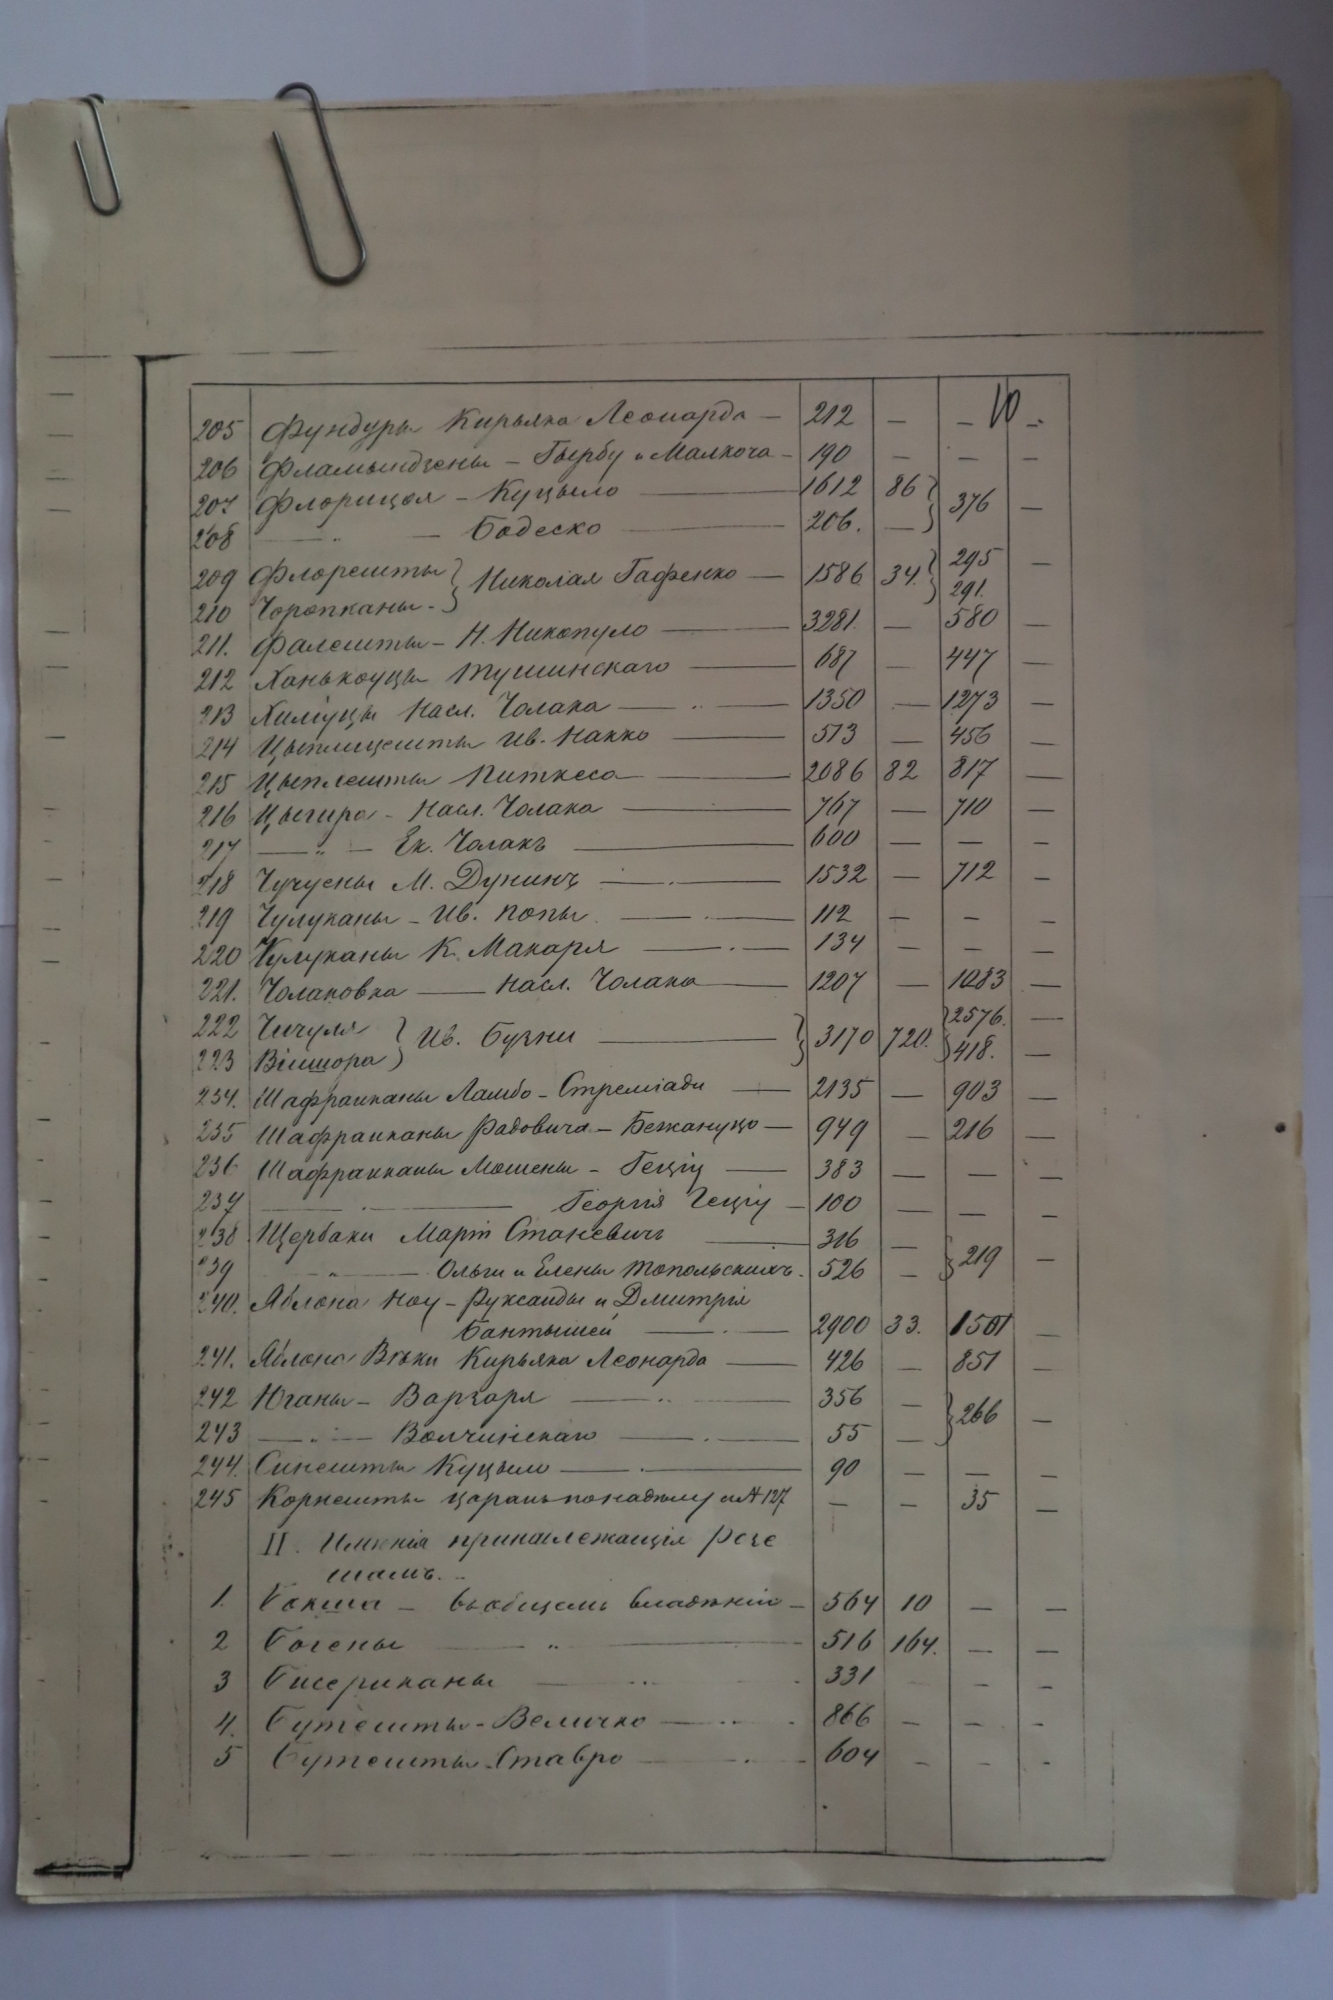 10
205 Фундуры Кирьяка Леонарда — 212 — — —
206 Фламындзены — Гырбу и Малкоча — 190 — — —
207 Флорицоя — Куцыло — 1612 86 } 376 —
208 — „ — Бодеско — 206. —
209 Флорешты } Николая Гафенко — 1586 34. } 295 —
210 Чоропканы. 291.
211. Фалешты — Н. Никопуло — 3281. — 580 —
212 Ханькоуцы Тушинскаго — 687 — 447 —
213 Хилiуцы Насл. Чолака — 1350 — 1273 —
214 Цыплицешты Ив. Накко — 513 — 456 —
215 Цыплешты Питкеса — 2086 82 817 —
216 Цыгира — Насл. Чолака — 767 — 710 —
217 — „ — Ек. Чолакъ — 600 — — —
218 Чучуены М. Дунинъ — 1532 — 712 —
219 Чулуканы — Ив. Попы — 112 — — —
220 Чулуканы К. Макаря — 134 — — —
221. Чолаковка — Насл. Чолака — 1207 — 1083 —
222 Чичуля } Ив. Бузни — } 3170 720. } 2576. —
223 Вiишора } 418. —
234. Шафранканы Ламбо — Стремiади — 2135 — 903 —
235 Шафранканы Радовича — Бежануцо — 949 — 216 —
236 Шафранканы Мошены — Гецiу — 383 — — —
237 — „ — Георгiя Гецiу — 100 — — —
238 Щербаки Марiи Станевичъ — 316 — } 219 —
239 — „ — Ольги и Елены Топольскихъ. 526 —
240. Яблона Ноу — Руксанды и Дмитрiя
Бантышей — 2900 33. 1501 —
241. Яблона Вѣки Кирьяка Леонарда — 426 — 851 —
242 Юганы — Варзаря — 356 — } 266 —
243 — „ — Волчинскаго — 55 —
244. Синешты Куцыло — 90 — — —
245 Корнешты царань по надѣлу — — 35 —
II. Имѣнiя принадлежащiя резе
шамъ.
1. Бокша — въ общемъ владѣнiи — 564 10 — —
2 Богены — „ — 516 164. — —
3 Бисериканы — „ — 331 — —
4. Бутешты — Величко — „ — 866 — — —
5 Бутешты Ставро — „ — 604 — — —